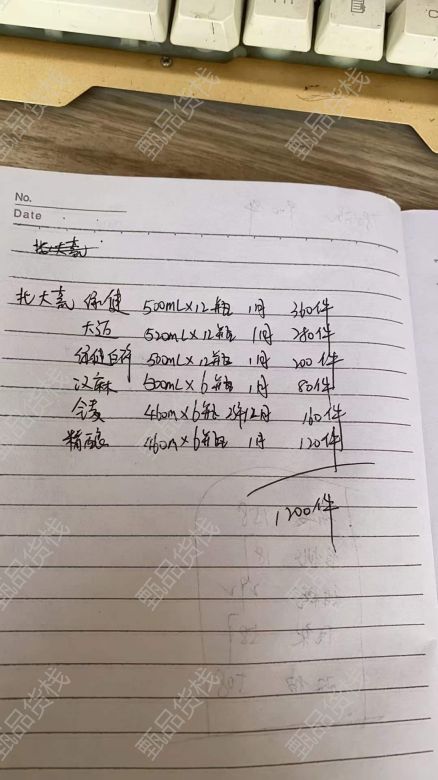 No.
Date
北大荒
北大荒 保健 500mL×12瓶 1月 360件
520mL×12瓶 1月 280件
保健白碎 500mL×12瓶 1月 200件
汉麻 500mL×6瓶 1月 80件
460m×6瓶 25年12月 160件
精酿 460m×6瓶 1月 120件
1200件
甄品货栈